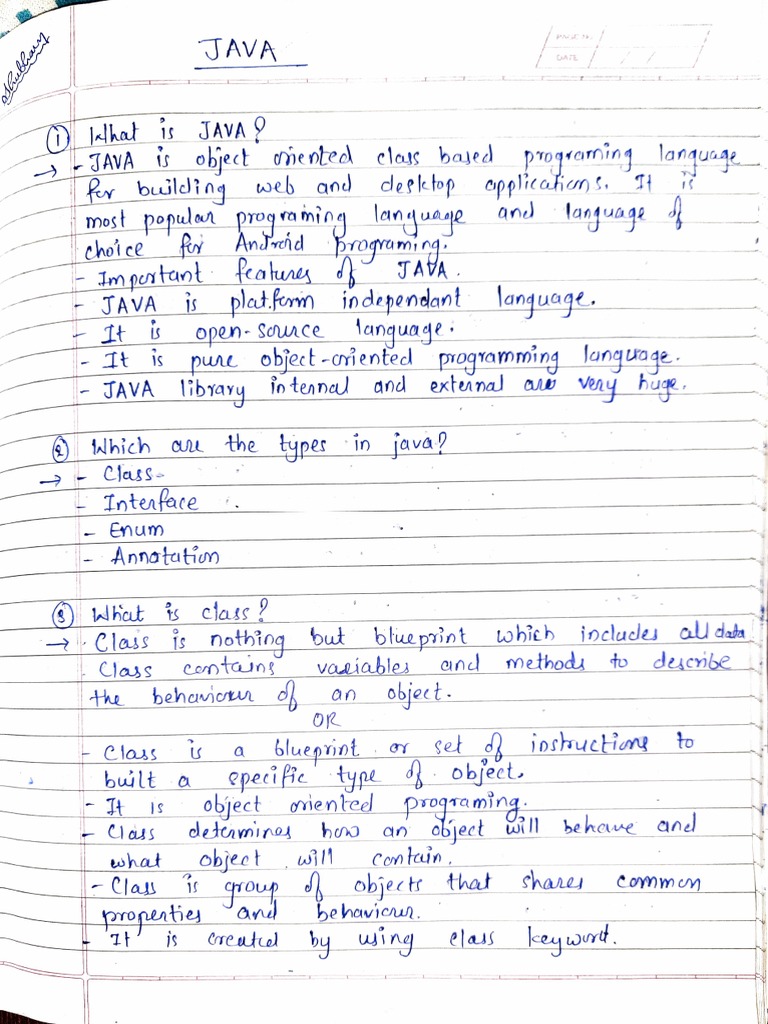 Shubham
JAVA
PAGE NO.
DATE
① What is JAVA?
→ - JAVA is object oriented class based programing language
for building web and desktop applications. It is
most popular programing language and language of
choice for Android programing.
- Important features of JAVA.
- JAVA is platform independant language.
- It is open-source language.
- It is pure object-oriented programming language.
- JAVA library internal and external are very huge.
② Which are the types in java?
→ - Class
- Interface
- Enum
- Annotation
③ What is class?
→ Class is nothing but blueprint which includes all data
Class contains variables and methods to describe
the behaviour of an object.
OR
- Class is a blueprint or set of instructions to
built a specific type of object.
- It is object oriented programing.
- Class determines how an object will behave and
what object will contain.
- Class is group of objects that shares common
properties and behaviour.
- It is created by using class keyword.